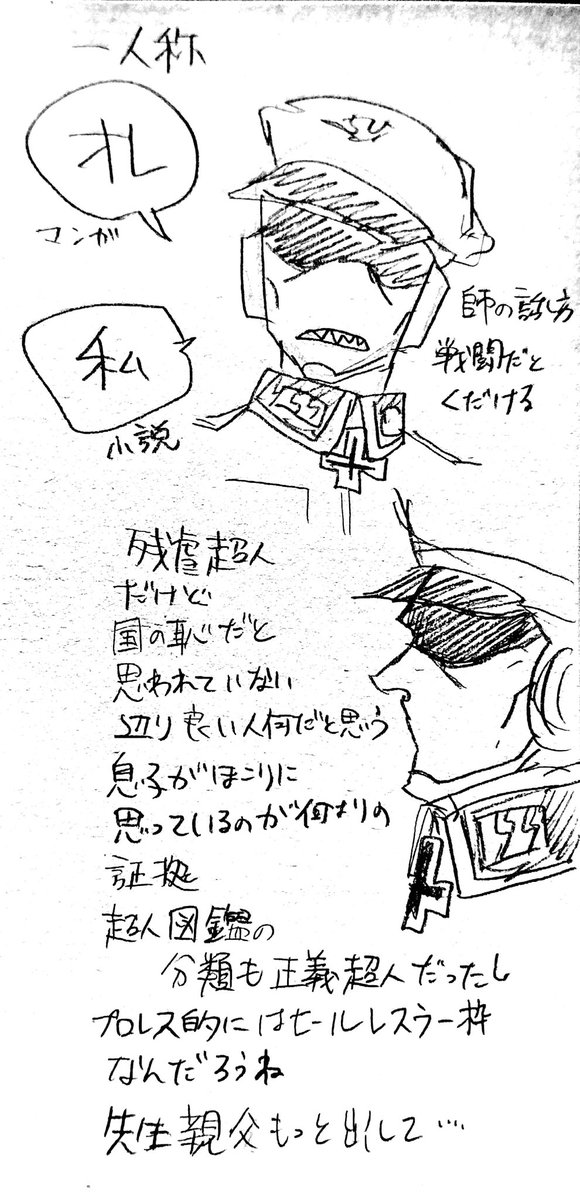 一人称
オレ
マンガ
私
小説
師の話し方
戦闘だと
くだける
残虐超人
だけど
国の恥だと
思われていない
辺り良い人何だと思う
息子がほこりに
思っているのが何よりの
証拠
超人図鑑の
分類も正義超人だったし
プロレス的にはヒールレスラー枠
なんだろうね
先生親父もっと出して…